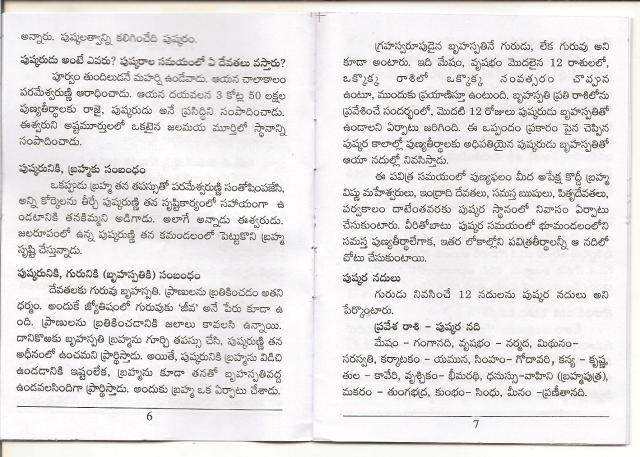 అన్నారు. పుష్కలత్వాన్ని కలిగించేది పుష్కరం.
పుష్కరుడు అంటే ఎవరు? పుష్కరాల సమయంలో ఏ దేవతలు వస్తారు?
పూర్వం తుందిలుడనే మహర్షి ఉండేవాడు. ఆయన చాలాకాలం
పరమేశ్వరుణ్ణి ఆరాధించాడు. ఆయన దయవలన 3 కోట్ల 50 లక్షల
పుణ్యతీర్థాలకు రాజై, పుష్కరుడు అనే ప్రసిద్ధిని సంపాదించాడు.
ఈశ్వరుని అష్టమూర్తులలో ఒకటైన జలమయ మూర్తిలో స్థానాన్ని
సంపాదించాడు.
పుష్కరునికి, బ్రహ్మకు సంబంధం
ఒకప్పుడు బ్రహ్మ తన తపస్సుతో పరమేశ్వరుణ్ణి సంతోషింపజేసి,
అన్ని కోర్కెలను తీర్చే పుష్కరుణ్ణి తన సృష్టికార్యంలో సహాయంగా ఉ
ండటానికి తనకిమ్మని అడిగాడు. అలాగే అన్నాడు ఈశ్వరుడు.
జలరూపంలో ఉన్న పుష్కరుణ్ణి తన కమండలంలో పెట్టుకొని బ్రహ్మ
సృష్టి చేస్తున్నాడు.
పుష్కరునికి, గురునికి (బృహస్పతికి) సంబంధం
దేవతలకు గురువు బృహస్పతి. ప్రాణులను బ్రతికించడం అతని
ధర్మం. అందుకే జ్యోతిషంలో గురువుకు 'జీవ' అనే పేరు కూడా ఉ
ంది. ప్రాణులను బ్రతికించడానికి జలాలు కావలసి ఉన్నాయి.
దానికొఱకు బృహస్పతి బ్రహ్మను గూర్చి తపస్సు చేసి, పుష్కరుణ్ణి తన
అధీనంలో ఉంచమని ప్రార్థిస్తాడు. అయితే, పుష్కరునికి బ్రహ్మను విడిచి
ఉండడానికి ఇష్టంలేక, బ్రహ్మను కూడా తనతో బృహస్పతివద్ద
ఉండవలసిందిగా ప్రార్థిస్తాడు. అందుకు బ్రహ్మ ఒక ఏర్పాటు చేశాడు.
6
గ్రహస్వరూపుడైన బృహస్పతినే గురుడు, లేక గురువు అని
కూడా అంటారు. ఇది మేషం, వృషభం మొదలైన 12 రాశులలో,
ఒక్కొక్క రాశిలో ఒక్కొక్క సంవత్సరం చొప్పున
ఉంటూ, ముందుకు ప్రయాణిస్తూ ఉంటుంది. బృహస్పతి ప్రతి రాశిలోను
ప్రవేశించే సందర్భంలో, మొదటి 12 రోజులు పుష్కరుడు బృహస్పతితో
ఉండాలని ఏర్పాటు జరిగింది. ఈ ఒప్పందం ప్రకారం పైన చెప్పిన
పుష్కర కాలాల్లో పుణ్యతీర్థాలకు అధిపతియైన పుష్కరుడు బృహస్పతితో
ఆయా నదుల్లో నివసిస్తాడు.
ఈ పవిత్ర సమయంలో పుణ్యఫలం మీద అపేక్ష కొద్దీ బ్రహ్మ
విష్ణు మహేశ్వరులు, ఇంద్రాది దేవతలు, సమస్త ఋషులు, పితృదేవతలు,
పర్వకాలం దాటేంతవరకు పుష్కర స్థానంలో నివాసం ఏర్పాటు
చేసుకుంటారు. వీరితోబాటు పుష్కర సమయంలో భూమండలంలోని
సమస్త పుణ్యతీర్థాలేగాక, ఇతర లోకాల్లోని పవిత్రతీర్థాలన్నీ ఆ నదిలో
చోటు చేసుకుంటాయి.
పుష్కర నదులు
గురుడు నివసించే 12 నదులను పుష్కర నదులు అని
పేర్కొంటారు.
ప్రవేశ రాశి - పుష్కర నది
మేషం - గంగానది, వృషభం - నర్మద, మిథునం-
సరస్వతి, కర్కాటకం - యమున, సింహం- గోదావరి, కన్య - కృష్ణ,
తుల - కావేరి, వృశ్చికం- భీమరథి, ధనుస్సు-వాహిని (బ్రహ్మపుత్ర),
మకరం - తుంగభద్ర, కుంభం- సింధు, మీనం -ప్రణీతానది.
7